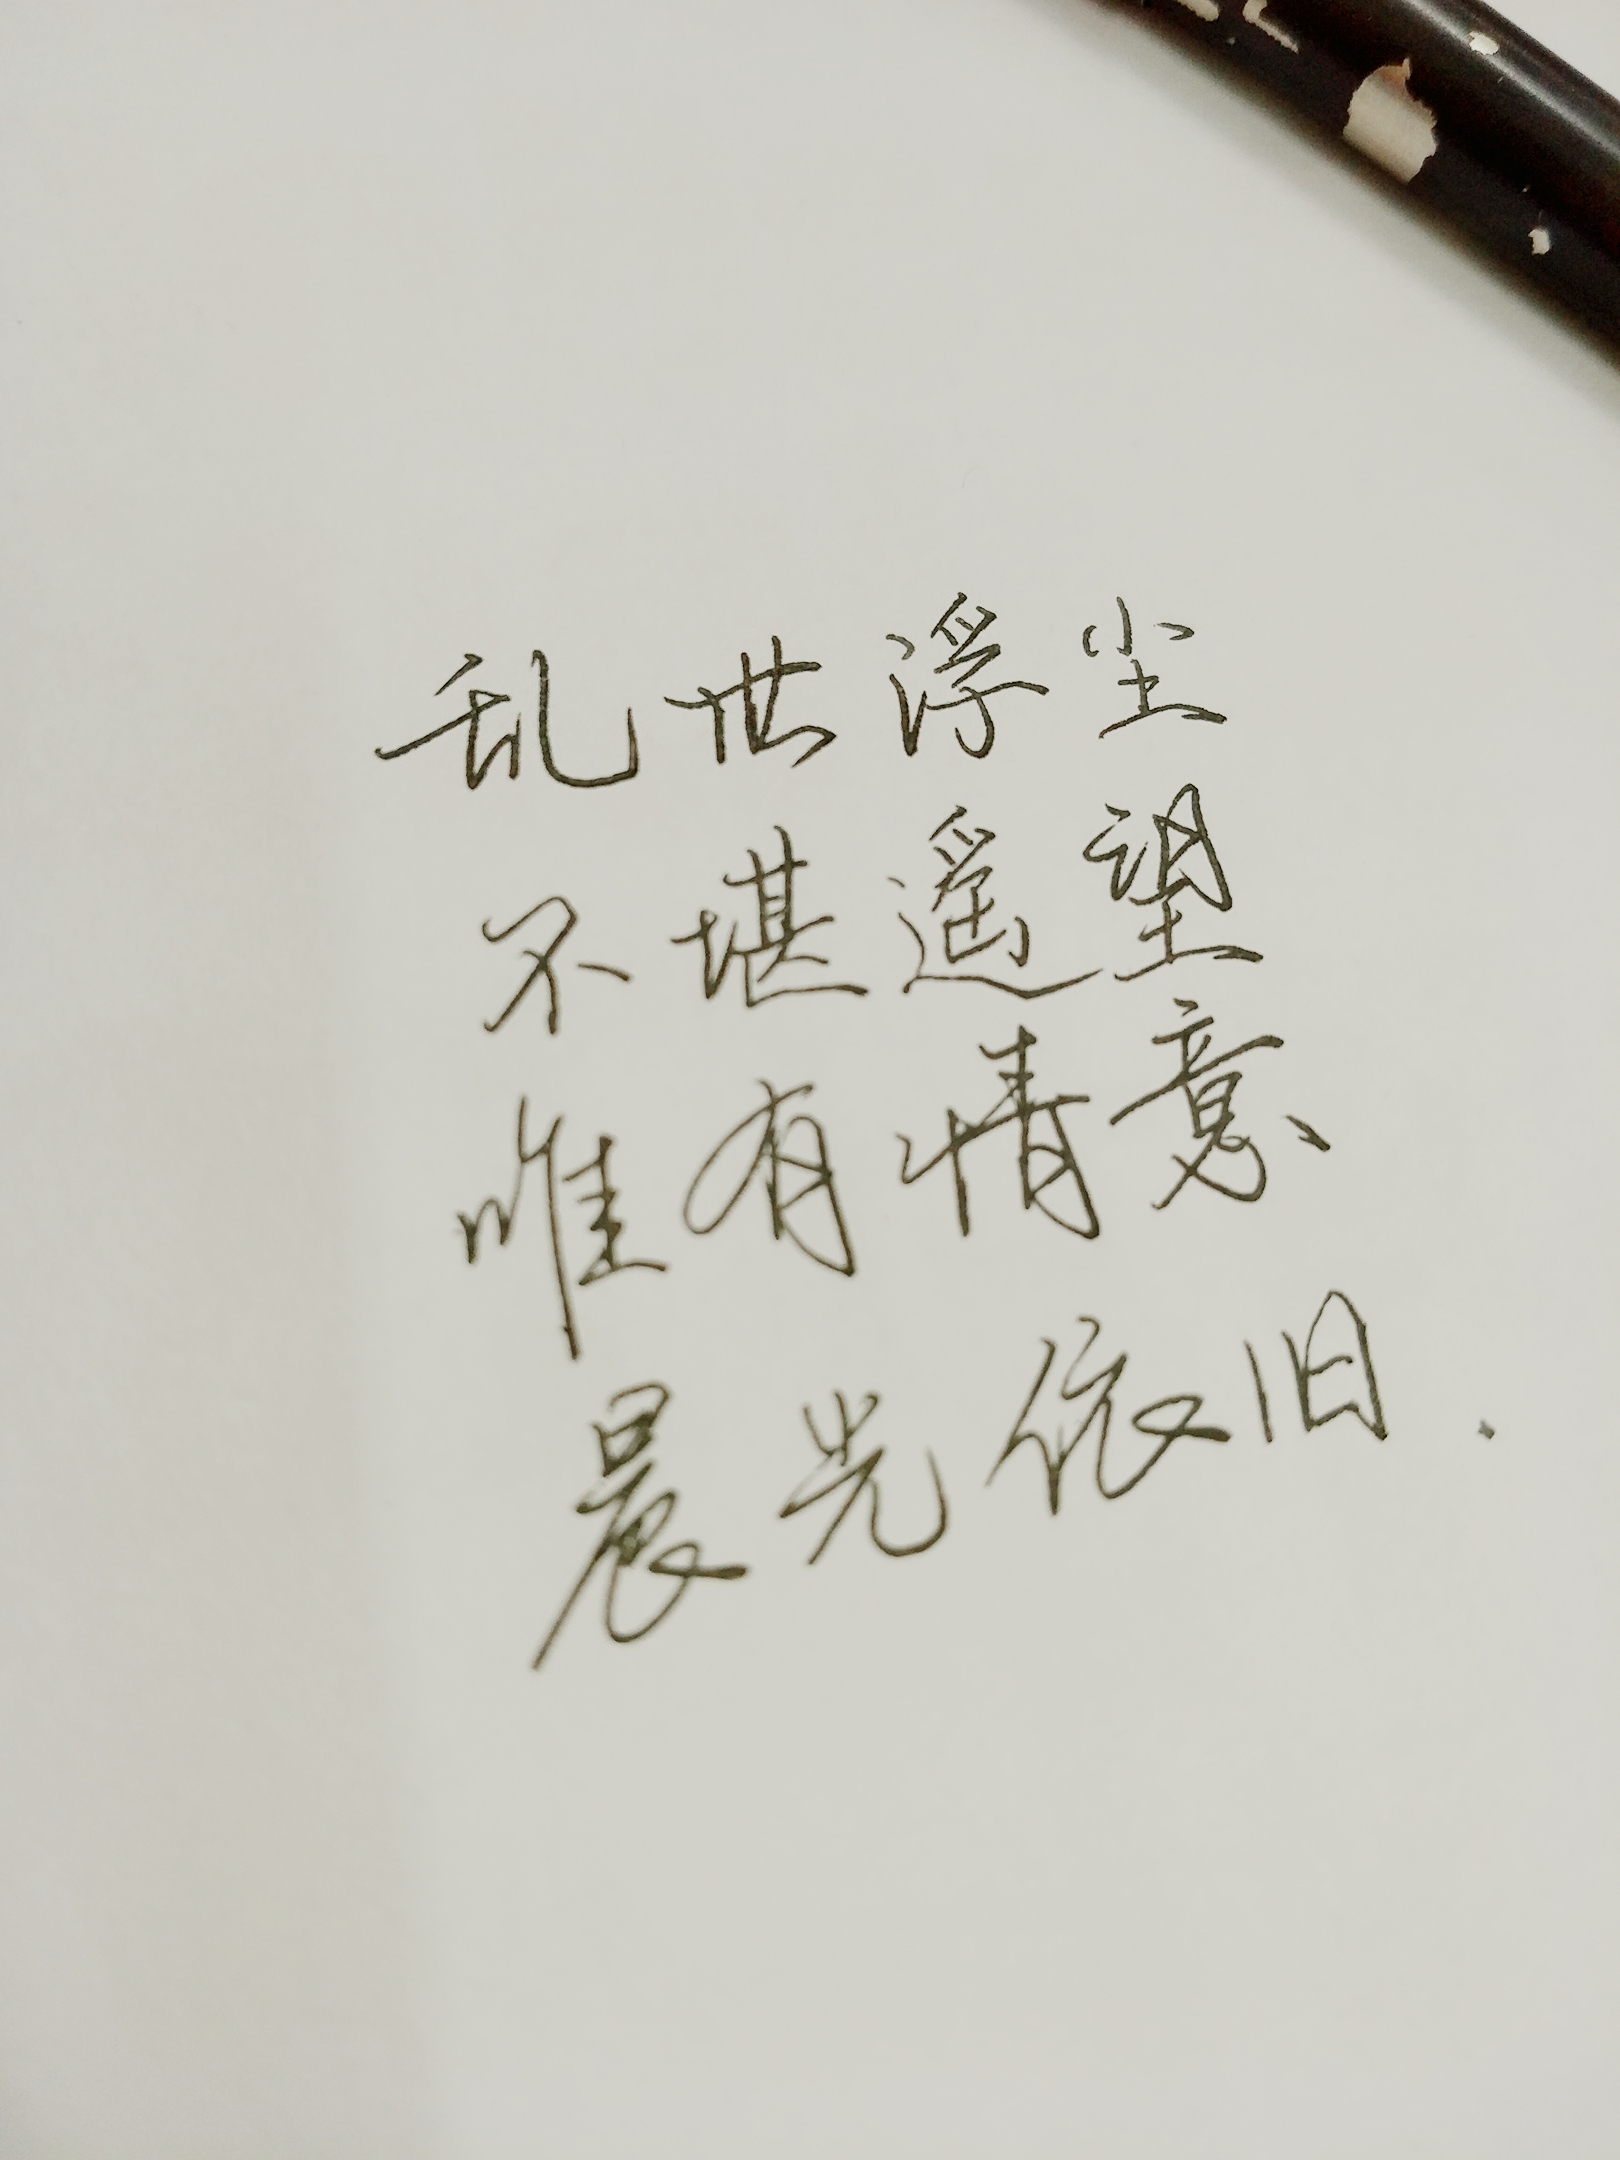 乱世浮尘
不堪遥望
唯有情意
晨光依旧.